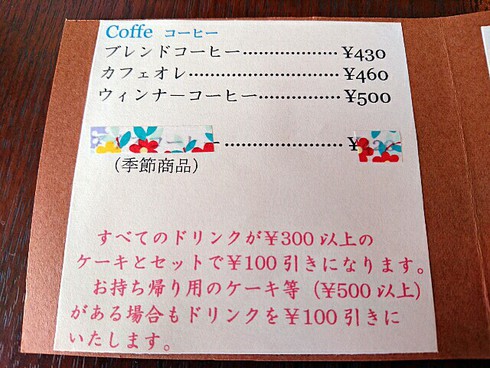 Coffe コーヒー
ブレンドコーヒー……………¥430
カフェオレ……………………¥460
ウィンナーコーヒー…………¥500
……………………¥
（季節商品）
すべてのドリンクが¥300以上の
ケーキとセットで¥100引きになります。
お持ち帰り用のケーキ等（¥500以上）
がある場合もドリンクを¥100引きに
いたします。